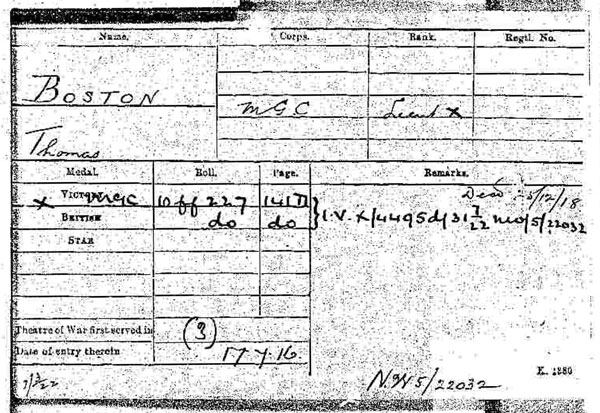 Name. Corps. Rank. Regtl. No.
BOSTON
MGC Lieut x
Thomas
Medal. Roll. Page. Remarks.
Died 5/12/18
x VICTORY MGC Off 227 141D
BRITISH do do } I.V. X/4495 d/ 31 7/22 NW/5/22032
STAR
Theatre of War first served in (3)
Date of entry therein 17 7 16
K. 1380
N.W 5/22032